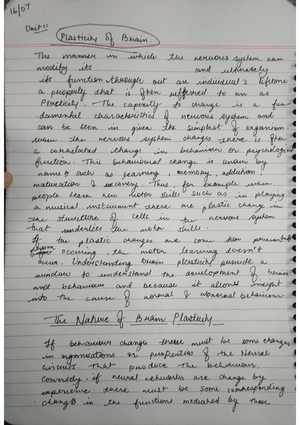 16/07
Unit 11
Plasticity of Brain
The manner in which the nervous system can
modify its and ultimately
its function through out an individual's lifetime
a property that is often reffered to an as
Plasticity. The capacity to change is a fun-
damental characteristics of nervous system and
can be seen in given the simplest of organism
when the nervous system changes there is often
a correlated change in behaviour or psychological
function. This behavioural change is unain by
names such as learning, memory, addiction,
maturation & recovery. Thus, for example when
people learn new motor skills such as in playing
a musical instrument there are plastic change in
the structure of cells in the nervous system
that underlies the motor skills.
If the plastic changes are come
from occuring, the motor learning doesn't
occur. Understanding brain plasticity provide a
window to understand the development of brain
and behaviour and because it allows insight
into the cause of normal & abnormal behaviour
The Nature of Brain Plasticity
If behaviour changes there must be some changes
in organisations or properties of the Neural
circuits that produce the behaviour,
conversely, if neural networks are change by
experience there must be some corresponding
change in the functions mediated by those